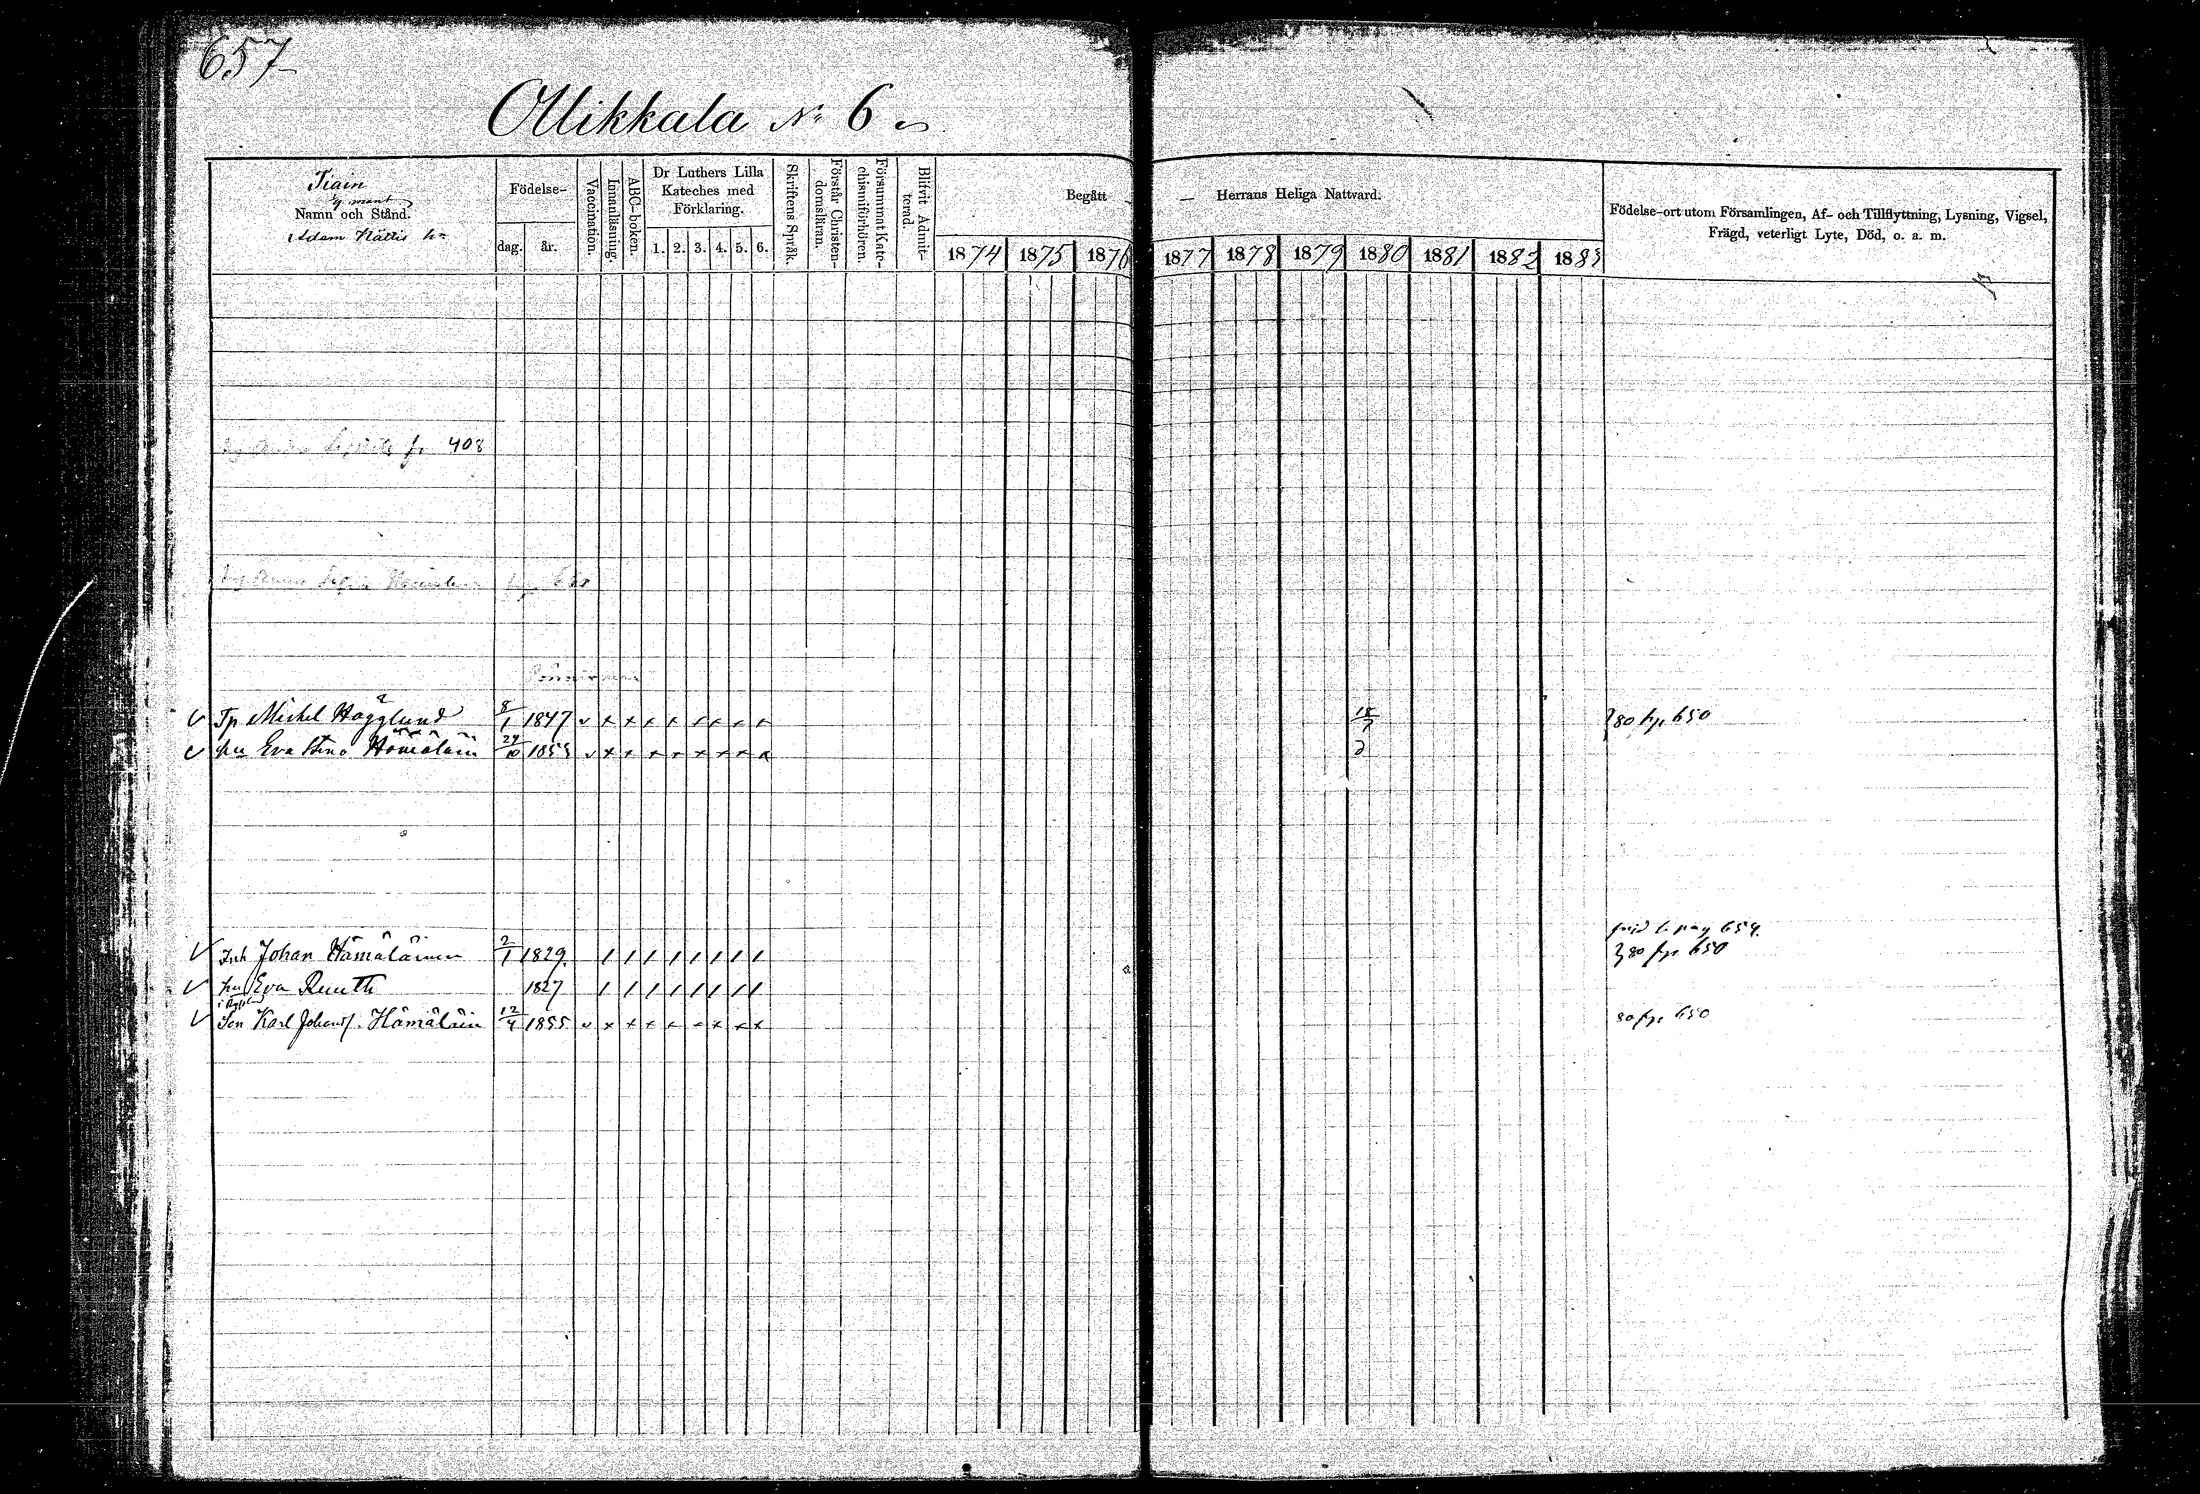 657
Ollikkala No 6
Tiain
Namn och Stånd.
Adam Nättis hn
Födelse-
dag.
år.
Vaccination.
Innanläsning.
ABC-boken.
Dr Luthers Lilla
Kateches med
Förklaring.
1. 2. 3. 4. 5. 6.
Skriftens Språk.
Förstår Christen-
domsläran.
Försummat Kate-
chismiförhören.
Blifvit Admit-
terad.
Begått — Herrans Heliga Nattvard.
1874 1875 1876 1877 1878 1879 1880 1881 1882 1883
Födelse-ort utom Församlingen, Af- och Tillflyttning, Lysning, Vigsel,
Frägd, veterligt Lyte, Död, o. a. m.
408
Tp Michel Hägglund 8/1 1847 v x x x x x x x x 18/7 80 fr. 650
hu Eva Stina Hämäläin 24/10 1855 v x x x x x x x x
Inh Johan Hämäläinen 2/1 1829 / / / / / / / / 80 fr. 650
hu Eva Ruuth 1827 / / / / / / / /
Son Karl Johans. Hämäläin 12/4 1855 v x x x x x x x x 80 fr. 650